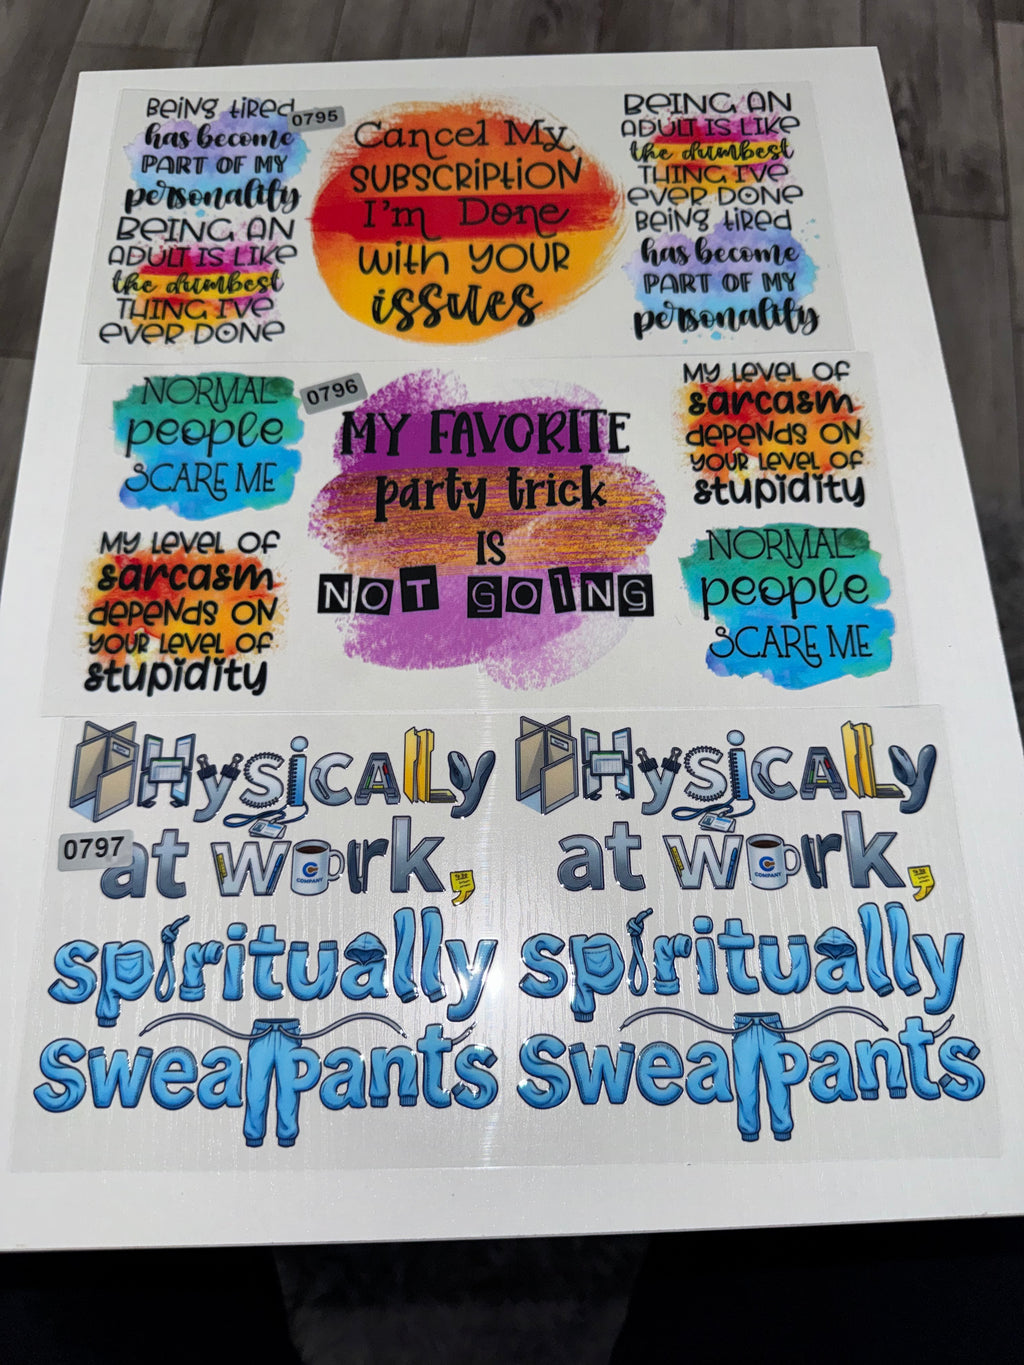 Being tired
has become
PART OF MY
personality
BEING AN
ADULT IS LIKE
the dumbest
THING I'VE
EVER DONE
0795
Cancel My
SUBSCRIPTION
I'm Done
with YOUR
issues
BEING AN
ADULT IS LIKE
the dumbest
THING I'VE
EVER DONE
Being tired
has become
PART OF MY
personality
NORMAL
people
SCARE ME
MY LEVEL OF
sarcasm
DEPENDS ON
YOUR LEVEL OF
stupidity
0796
MY FAVORITE
party trick
IS
NOT GOING
MY LEVEL OF
sarcasm
DEPENDS ON
YOUR LEVEL OF
stupidity
NORMAL
people
SCARE ME
0797
PHysicALLy
at work,
COMPANY
spiritually
sweatpants
PHysicALLy
at work,
COMPANY
spiritually
sweatpants